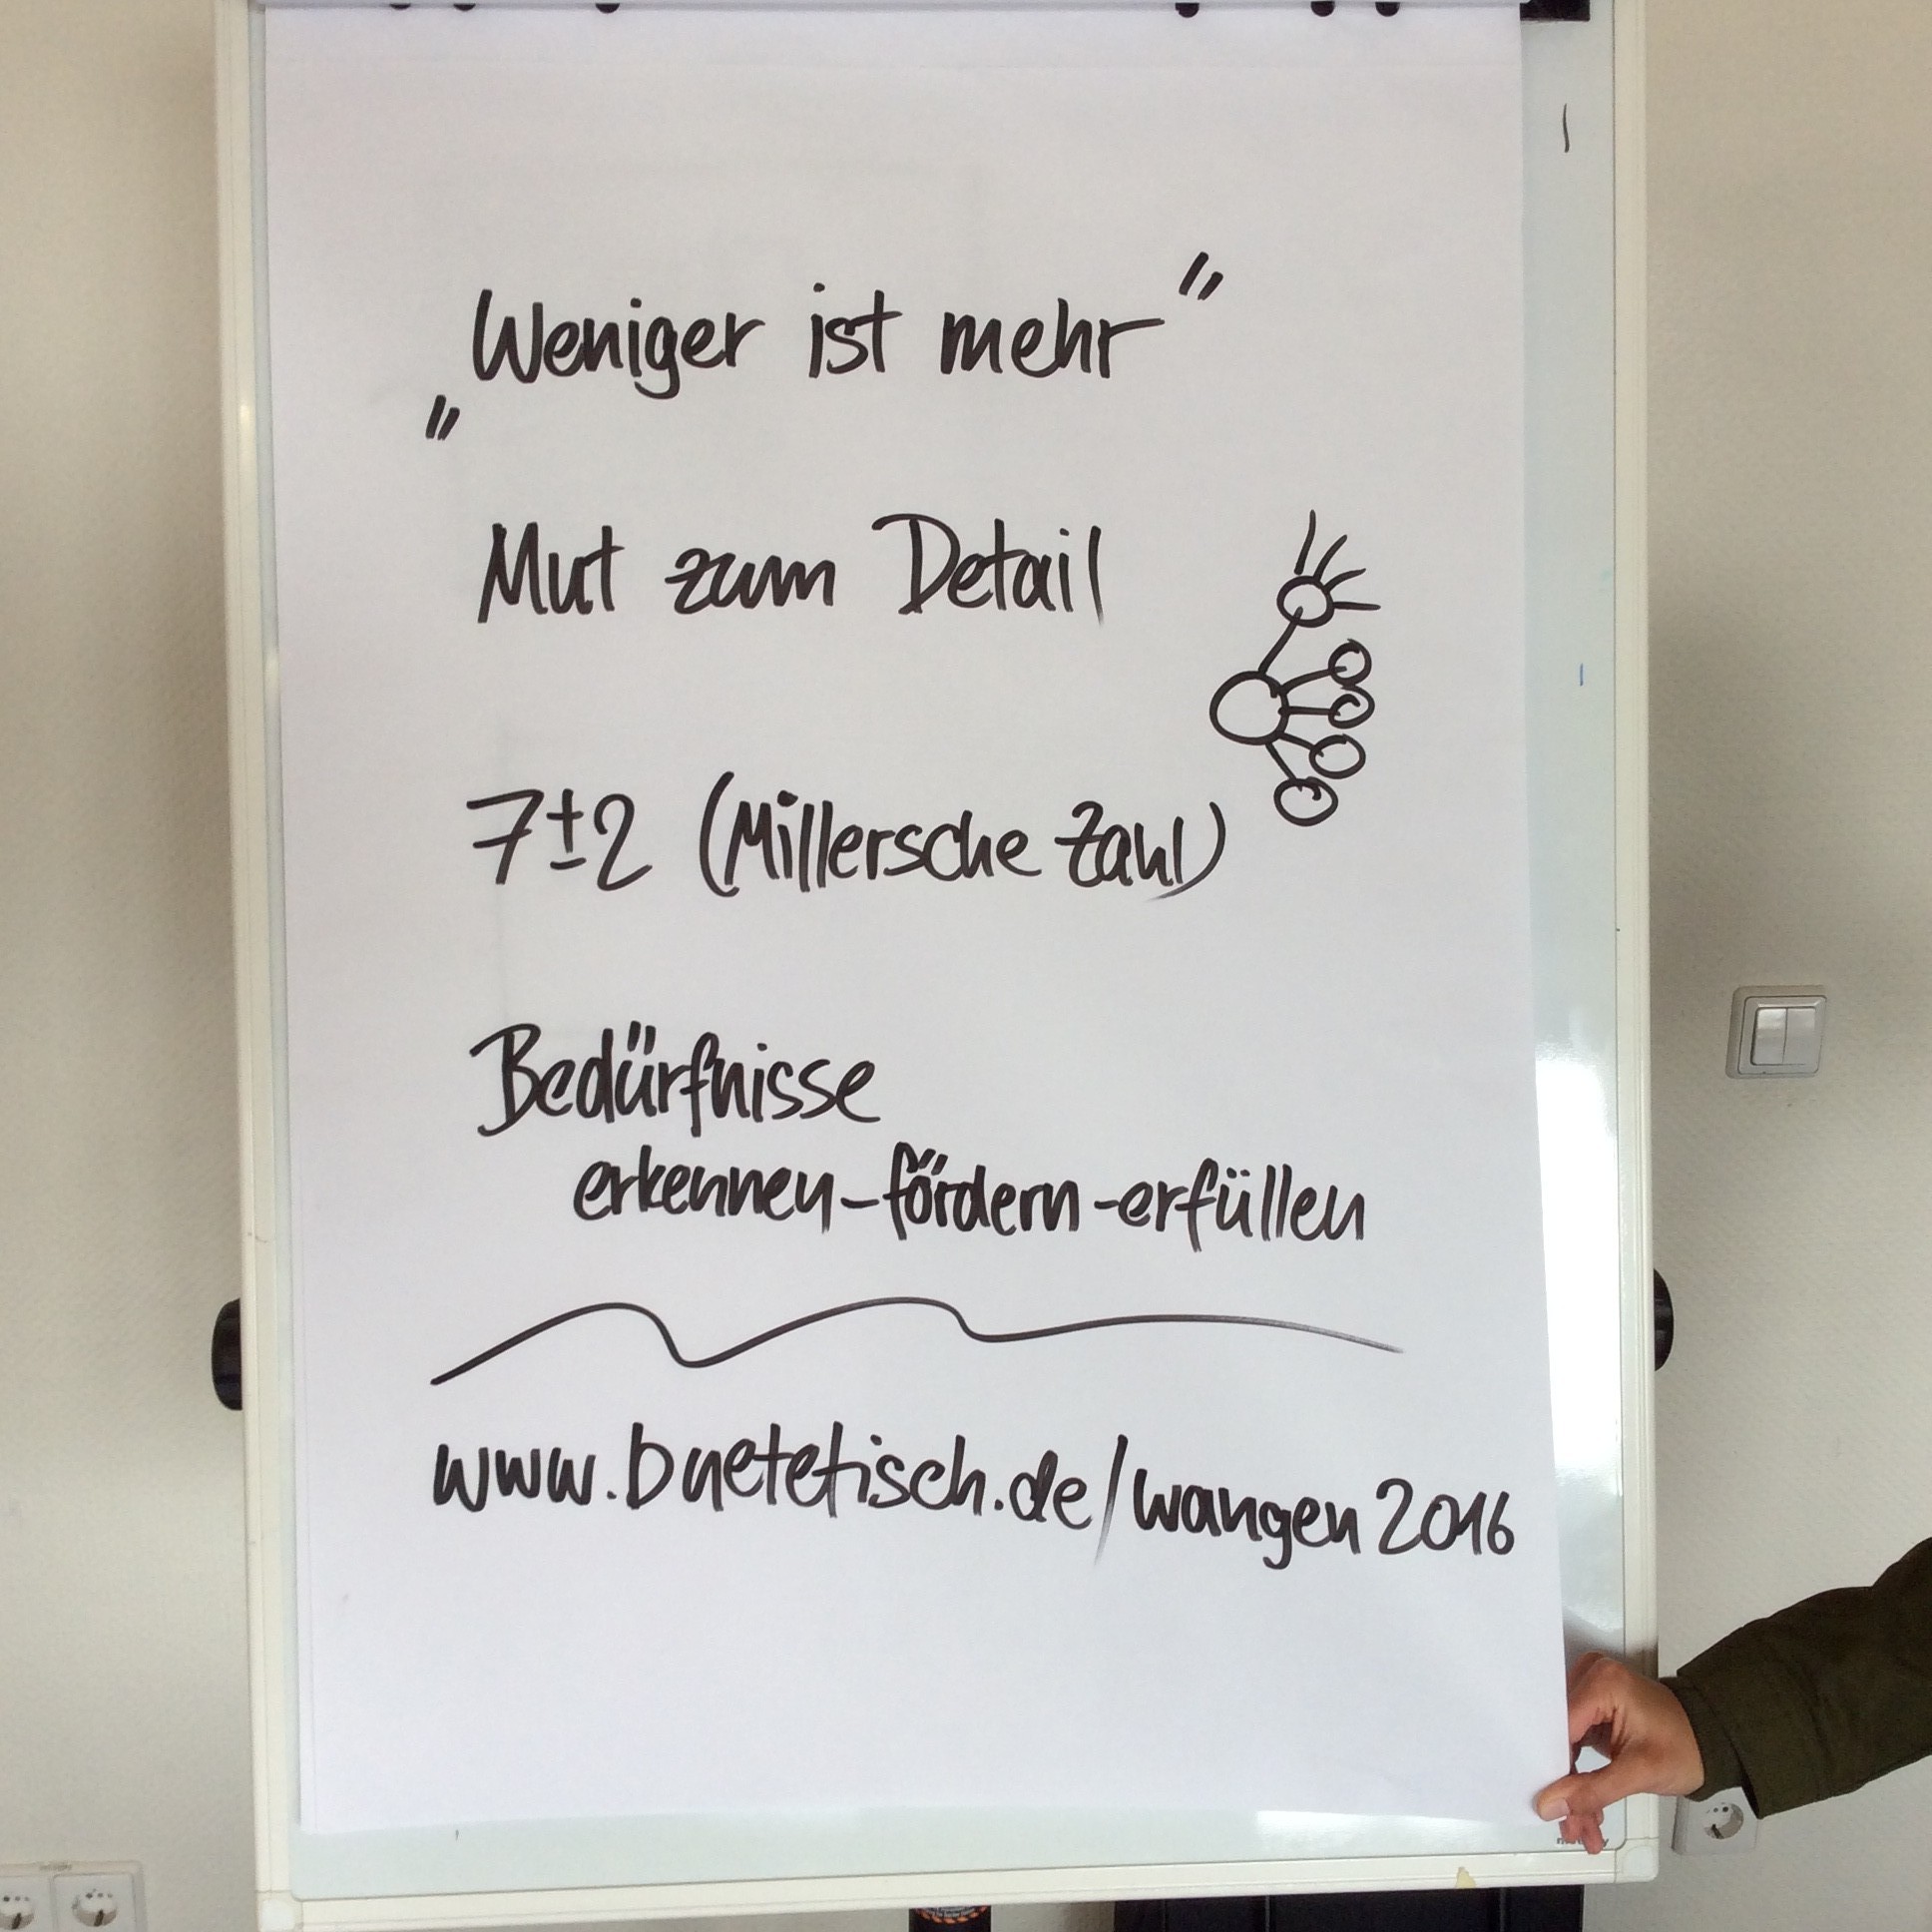 „Weniger ist mehr”
Mut zum Detail
7±2 (Millersche Zahl)
Bedürfnisse
erkennen-fördern-erfüllen
www.buetetisch.de/wangen2016